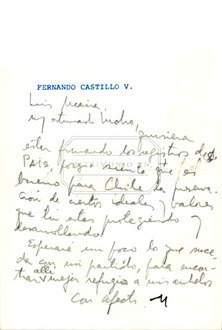 FERNANDO CASTILLO V.
Luis Maira,
mi estimado Lucho, quisiera
estar firmando los registros del
PAIS, porque siento que es
bueno para Chile la preserva-
ción de ciertos ideales y valores
que tú estas protegiendo y
desarrollando.
Esperaré un poco lo que suce-
da con mi partido, para encon-
trar allí mejor refugio a mis anhelos
Con afecto